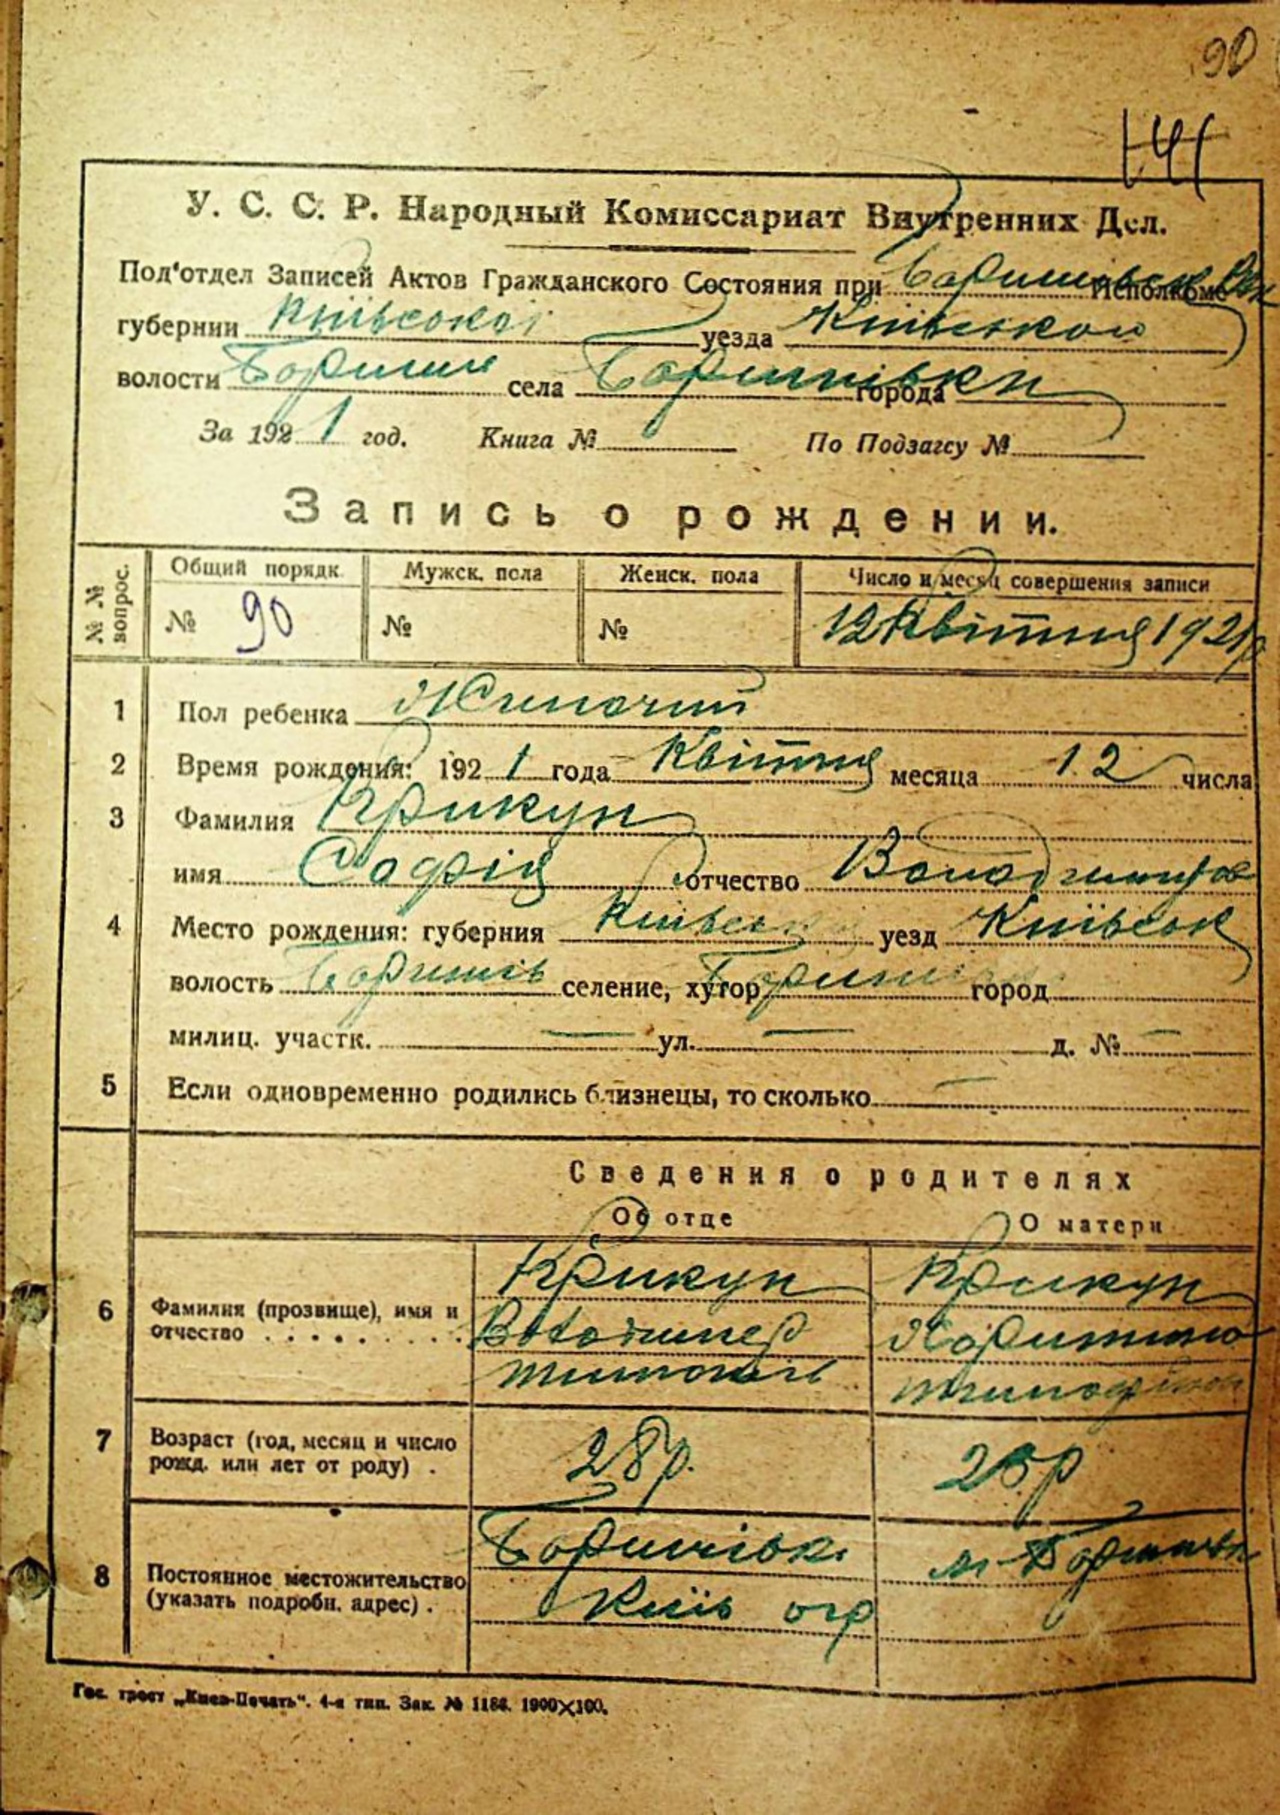 90
У. С. С. Р. Народный Комиссариат Внутренних Дел.
Под'отдел Записей Актов Гражданского Состояния при Исполкоме
губернии Київської уезда Київського
волости села Борщагівки города
За 1921 год. Книга № По Подзагсу №
Запись о рождении.
№№ вопрос. Общий порядк. Мужск. пола Женск. пола Число и месяц совершения записи
№ 90 № № 12 Квітня 1921 р
1 Пол ребенка Жиночий
2 Время рождения: 1921 года Квітня месяца 12 числа
3 Фамилия Крикун
имя Софія отчество
4 Место рождения: губерния Київськ уезд Київськ
волость селение, хутор город
милиц. участк. — ул. — д. № —
5 Если одновременно родились близнецы, то сколько —
Сведения о родителях
Об отце О матери
6 Фамилия (прозвище), имя и отчество Крикун Крикун
7 Возраст (год, месяц и число рожд. или лет от роду) . 28 р.
8 Постоянное местожительство (указать подробн. адрес) .
Київ
Гос. трест „Киев-Печать". 4-я тип. Зак. № 1186. 1900×100.